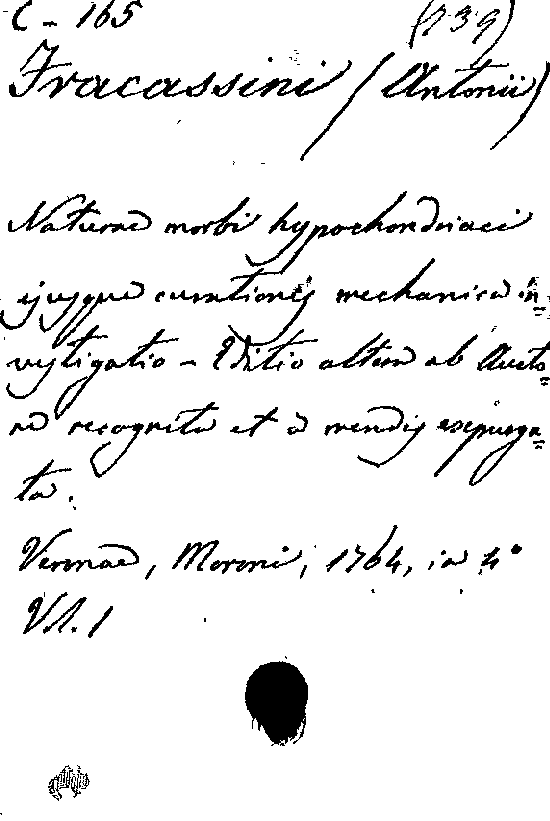 C - 165 (739)
Fracassini (Antonii)
Naturae morbi hypochondriaci
ejusque curationis mechanica in=
vestigatio - Editio altera ab Aucto=
re recognita et a mendis expurga=
ta.
Veronae, Moroni, 1764, in 4º
Vol. 1